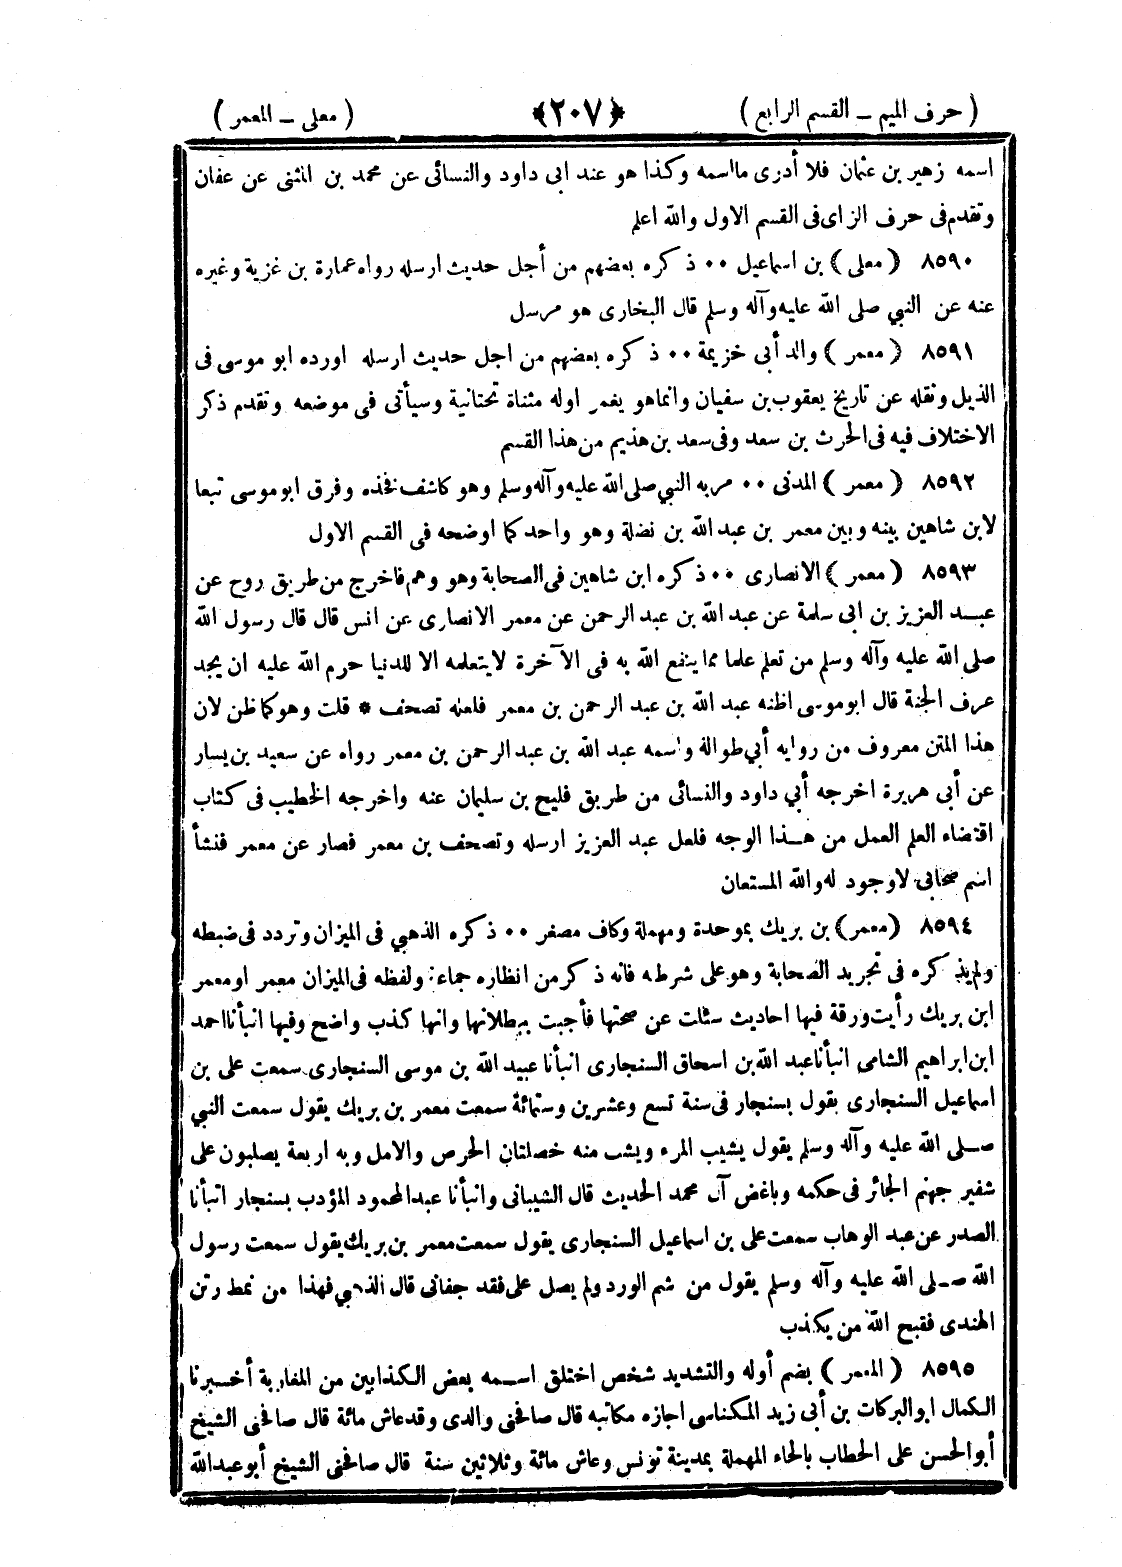 ( حرف الميم ــ القسم الرابع ) ﴿٢٠٧﴾ ( معلى ــ المعمر )
اسمه زهير بن عثمان فلا أدرى مااسمه وكذا هو عند ابى داود والنسائى عن محمد بن المثنى عن عفان
وتقدم فى حرف الزاى فى القسم الاول والله اعلم
٨٥٩٠ ( معلى ) بن اسماعيل ٠٠ ذكره بعضهم من أجل حديث ارسله رواه عمارة بن غزية وغيره
عنه عن النبي صلى الله عليه وآله وسلم قال البخارى هو مرسل
٨٥٩١ ( معمر ) والد أبى خزيمة ٠٠ ذكره بعضهم من اجل حديث ارسله اورده ابو موسى فى
الذيل ونقله عن تاريخ يعقوب بن سفيان وانماهو يعمر اوله مثناة تحتانية وسيأتى فى موضعه وتقدم ذكر
الاختلاف فيه فى الحرث بن سعد وفى سعد بن هذيم من هذا القسم
٨٥٩٢ ( معمر ) المدنى ٠٠ مر به النبي صلى الله عليه وآله وسلم وهو كاشف فخذه وفرق ابوموسى تبعا
لابن شاهين بينه وبين معمر بن عبد الله بن نضلة وهو واحد كما اوضحه فى القسم الاول
٨٥٩٣ ( معمر ) الانصارى ٠٠ ذكره ابن شاهين فى الصحابة وهو وهم فاخرج من طريق روح عن
عبــد العزيز بن ابى سلمة عن عبد الله بن عبد الرحمن عن معمر الانصارى عن انس قال قال رسول الله
صلى الله عليه وآله وسلم من تعلم علما مما ينفع الله به فى الآخرة لايتعلمه الا للدنيا حرم الله عليه ان يجد
عرف الجنة قال ابوموسى اظنه عبد الله بن عبد الرحمن بن معمر فلعله تصحف * قلت وهو كما ظن لان
هذا المتن معروف من روايه أبي طوالة واسمه عبد الله بن عبد الرحمن بن معمر رواه عن سعيد بن يسار
عن أبى هريرة اخرجه أبي داود والنسائى من طريق فليح بن سليمان عنه واخرجه الخطيب فى كتاب
اقتضاء العلم العمل من هــذا الوجه فلعل عبد العزيز ارسله وتصحف بن معمر فصار عن معمر فنشأ
اسم صحابى لاوجود له والله المستعان
٨٥٩٤ ( معمر ) بن بريك بموحدة ومهملة وكاف مصغر ٠٠ ذكره الذهبي فى الميزان وتردد فى ضبطه
ولم يذكره فى تجريد الصحابة وهو على شرطه فانه ذكر من انظاره جماعة ولفظه فى الميزان معمر اومعمر
ابن بريك رأيت ورقة فيها احاديث سئلت عن صحتها فأجبت ببطلانها وانها كذب واضح وفيها انبأنا احمد
ابن ابراهيم الشامى انبأنا عبد الله بن اسحاق السنجارى انبأنا عبيد الله بن موسى السنجارى سمعت على بن
اسماعيل السنجارى يقول بسنجار فى سنة تسع وعشرين وستمائة سمعت معمر بن بريك يقول سمعت النبي
صــلى الله عليه وآله وسلم يقول يشيب المرء ويشب منه خصلتان الحرص والامل وبه اربعة يصلبون على
شفير جهنم الجائر فى حكمه وباغض آل محمد الحديث قال الشيبانى وانبأنا عبدالمحمود المؤدب بسنجار انبأنا
الصدر عن عبد الوهاب سمعت على بن اسماعيل السنجارى يقول سمعت معمر بن بريك يقول سمعت رسول
الله صــلى الله عليه وآله وسلم يقول من شم الورد ولم يصل على فقد جفانى قال الذهبي فهذا من نمط رتن
الهندى فقبح الله من يكذب
٨٥٩٥ ( المعمر ) بضم أوله والتشديد شخص اختلق اســمه بعض الكذابين من المغاربة أخــبرنا
الكمال ابوالبركات بن أبى زيد المكناسى اجازه مكاتبه قال صافحنى والدى وقد عاش مائة قال صافحنى الشيخ
أبوالحسن على الحطاب بالحاء المهملة بمدينة تونس وعاش مائة وثلاثين سنة قال صافحنى الشيخ أبوعبدالله